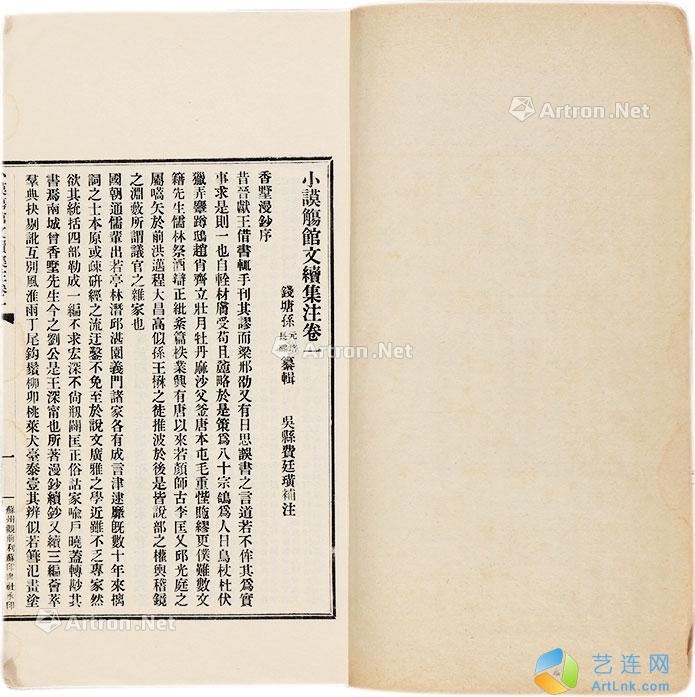 小謨觴館文續集注卷一
錢塘孫元培長熙纂輯 吳縣費廷璜補注
香墅漫鈔序
昔晉獻王借書輒手刊其謬而梁邢劭又有日思誤書之言道若不侔其爲實
事求是則一也自輇材膚受苟且麤略於是策爲八十宗鴿爲人日鳥杖杜伏
獵弄麞蹲鴟趙肖齊立壯月牡丹麻沙父釜唐本屯毛重悂貤繆更僕難數文
籍先生儒林祭酒辯正紕紊篇帙業興有唐以來若顏師古李匡乂邱光庭之
屬嚆矢於前洪邁程大昌高似孫王楙之徒推波於後是皆說部之權輿稽鏡
之淵藪所謂議官之雜家也
國朝通儒輩出若亭林潛邱湛園義門諸家各有成言津逮厥旣數十年來摛
詞之士本原或疎硏經之流迂鑿不免至於說文廣雅之學近雖不乏專家然
欲其統括四部勒成一編不求宏深不尙剙闢匡正俗詁家喩戶曉蓋轉尠其
書焉南城曾香墅先生今之劉公是王深甯也所著漫鈔續鈔又續三編薈萃
羣典抉剔訛互別風淮雨丁尾鈎鬚柳卯桃萊犬臺泰壹其辨似若簭氾畫塗
一
蘇州觀前利蘇印書社承印
Artron.Net
Artron.Net
Artron.Net
Artron.Net
Artron.Net
艺连网
ArtLnk.com